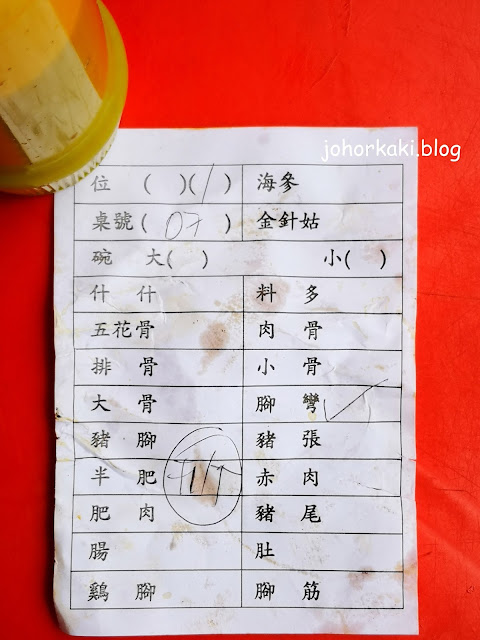 johorkaki.blog
位 ( )(/) 海參
桌號(07) 金針姑
碗 大( ) 小( )
什 什 料 多
五花骨 肉 骨
排 骨 小 骨
大 骨 腳 彎 ✓
豬 腳 豬 張
半 肥 赤 肉
肥 肉 豬 尾
腸 肚
鷄 腳 腳 筋